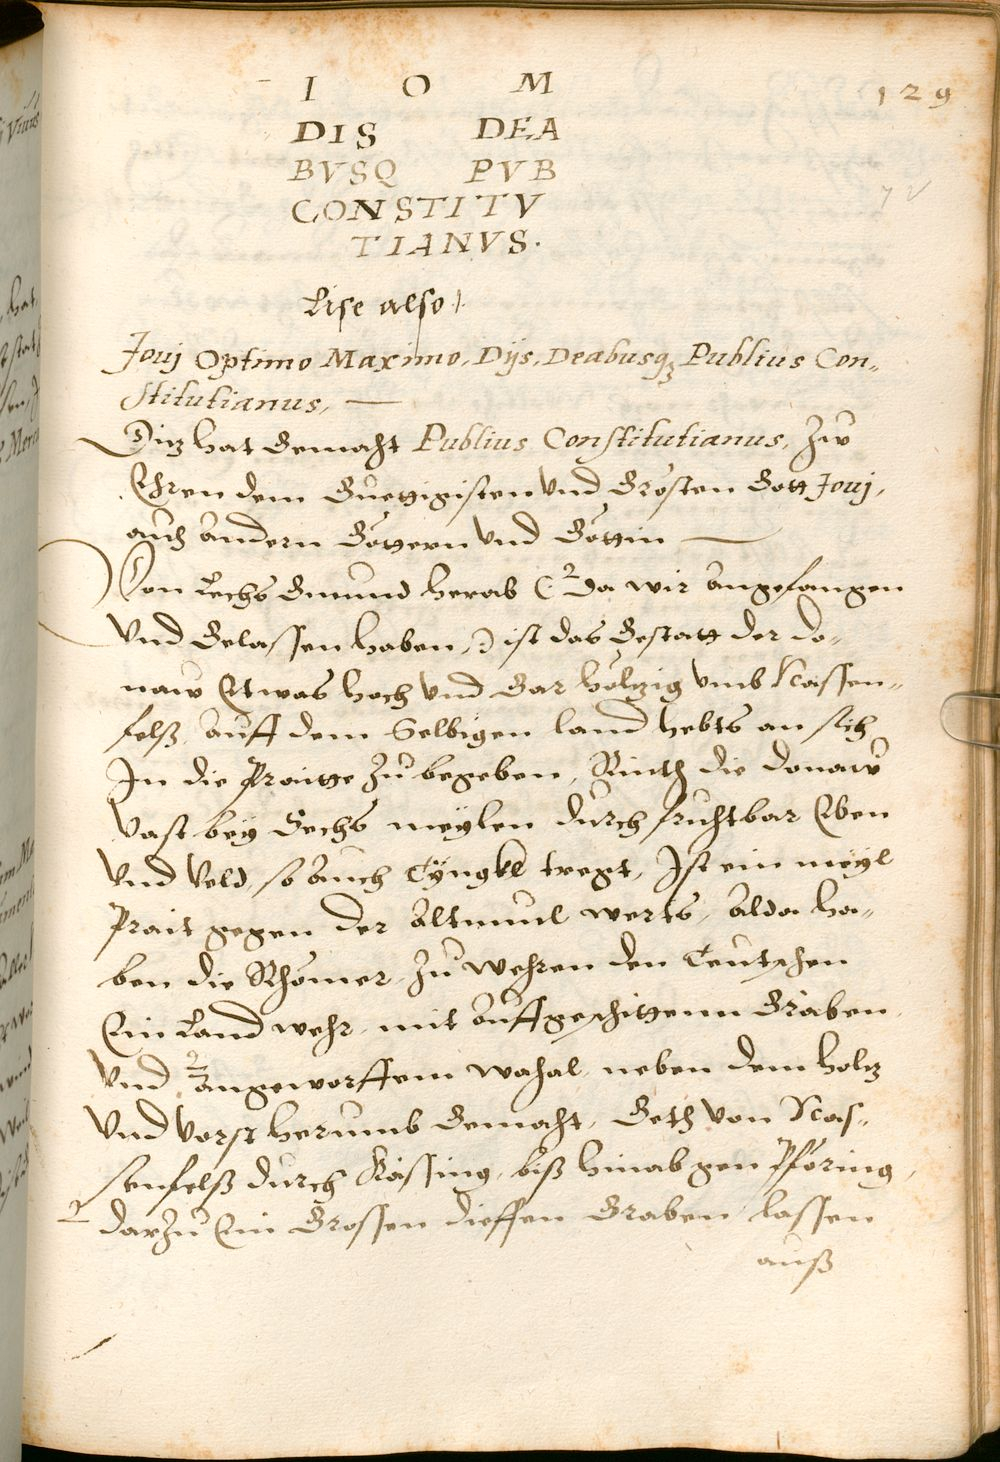 I O M
129
DIS DEA
BVSQ PVB
72
CONSTITV
TIANVS.
Lise also
Jouj Optimo Maximo, Dijs, Deabusqȝ Publius Con„
stitutianus,
Ditz hat Gemacht Publius Constitutianus, Zw
Ehren dem Guettigisten Vnd Grosten Gott Jouj,
auch andern Göttern Vnd Göttin
Von Lechs Gmünd herab (Da wir Angefangen
Vnd Gelassen haben,) ist das Gestatt der do„
naw Etwas hoch Vnd Gar holtzig vmb Nassen„
felß, Auff dem Selbigen land hebts an sich
In die Praitte Zu begeben, Rinth die donaw
Vast bey Sechs meylen durch fruchtbar Eben
Vnd Veld, so Auch Tyngkl tregt, Ist ein meyl
Prait gegen der Altmul werts, Alda ha„
ben die Rhömer Zu wehren den Teutschen
Ein Land wehr mit Auffgeschittenn Gräben,
Vnd Angeworffem wahal neben dem holtz
Vnd Vorst herumb Gemacht, Geth von Nas„
senfelß durch Käsing, biß hinab gen Pföring,
darZu Ein Grossen dieffen Graben lassen
auß